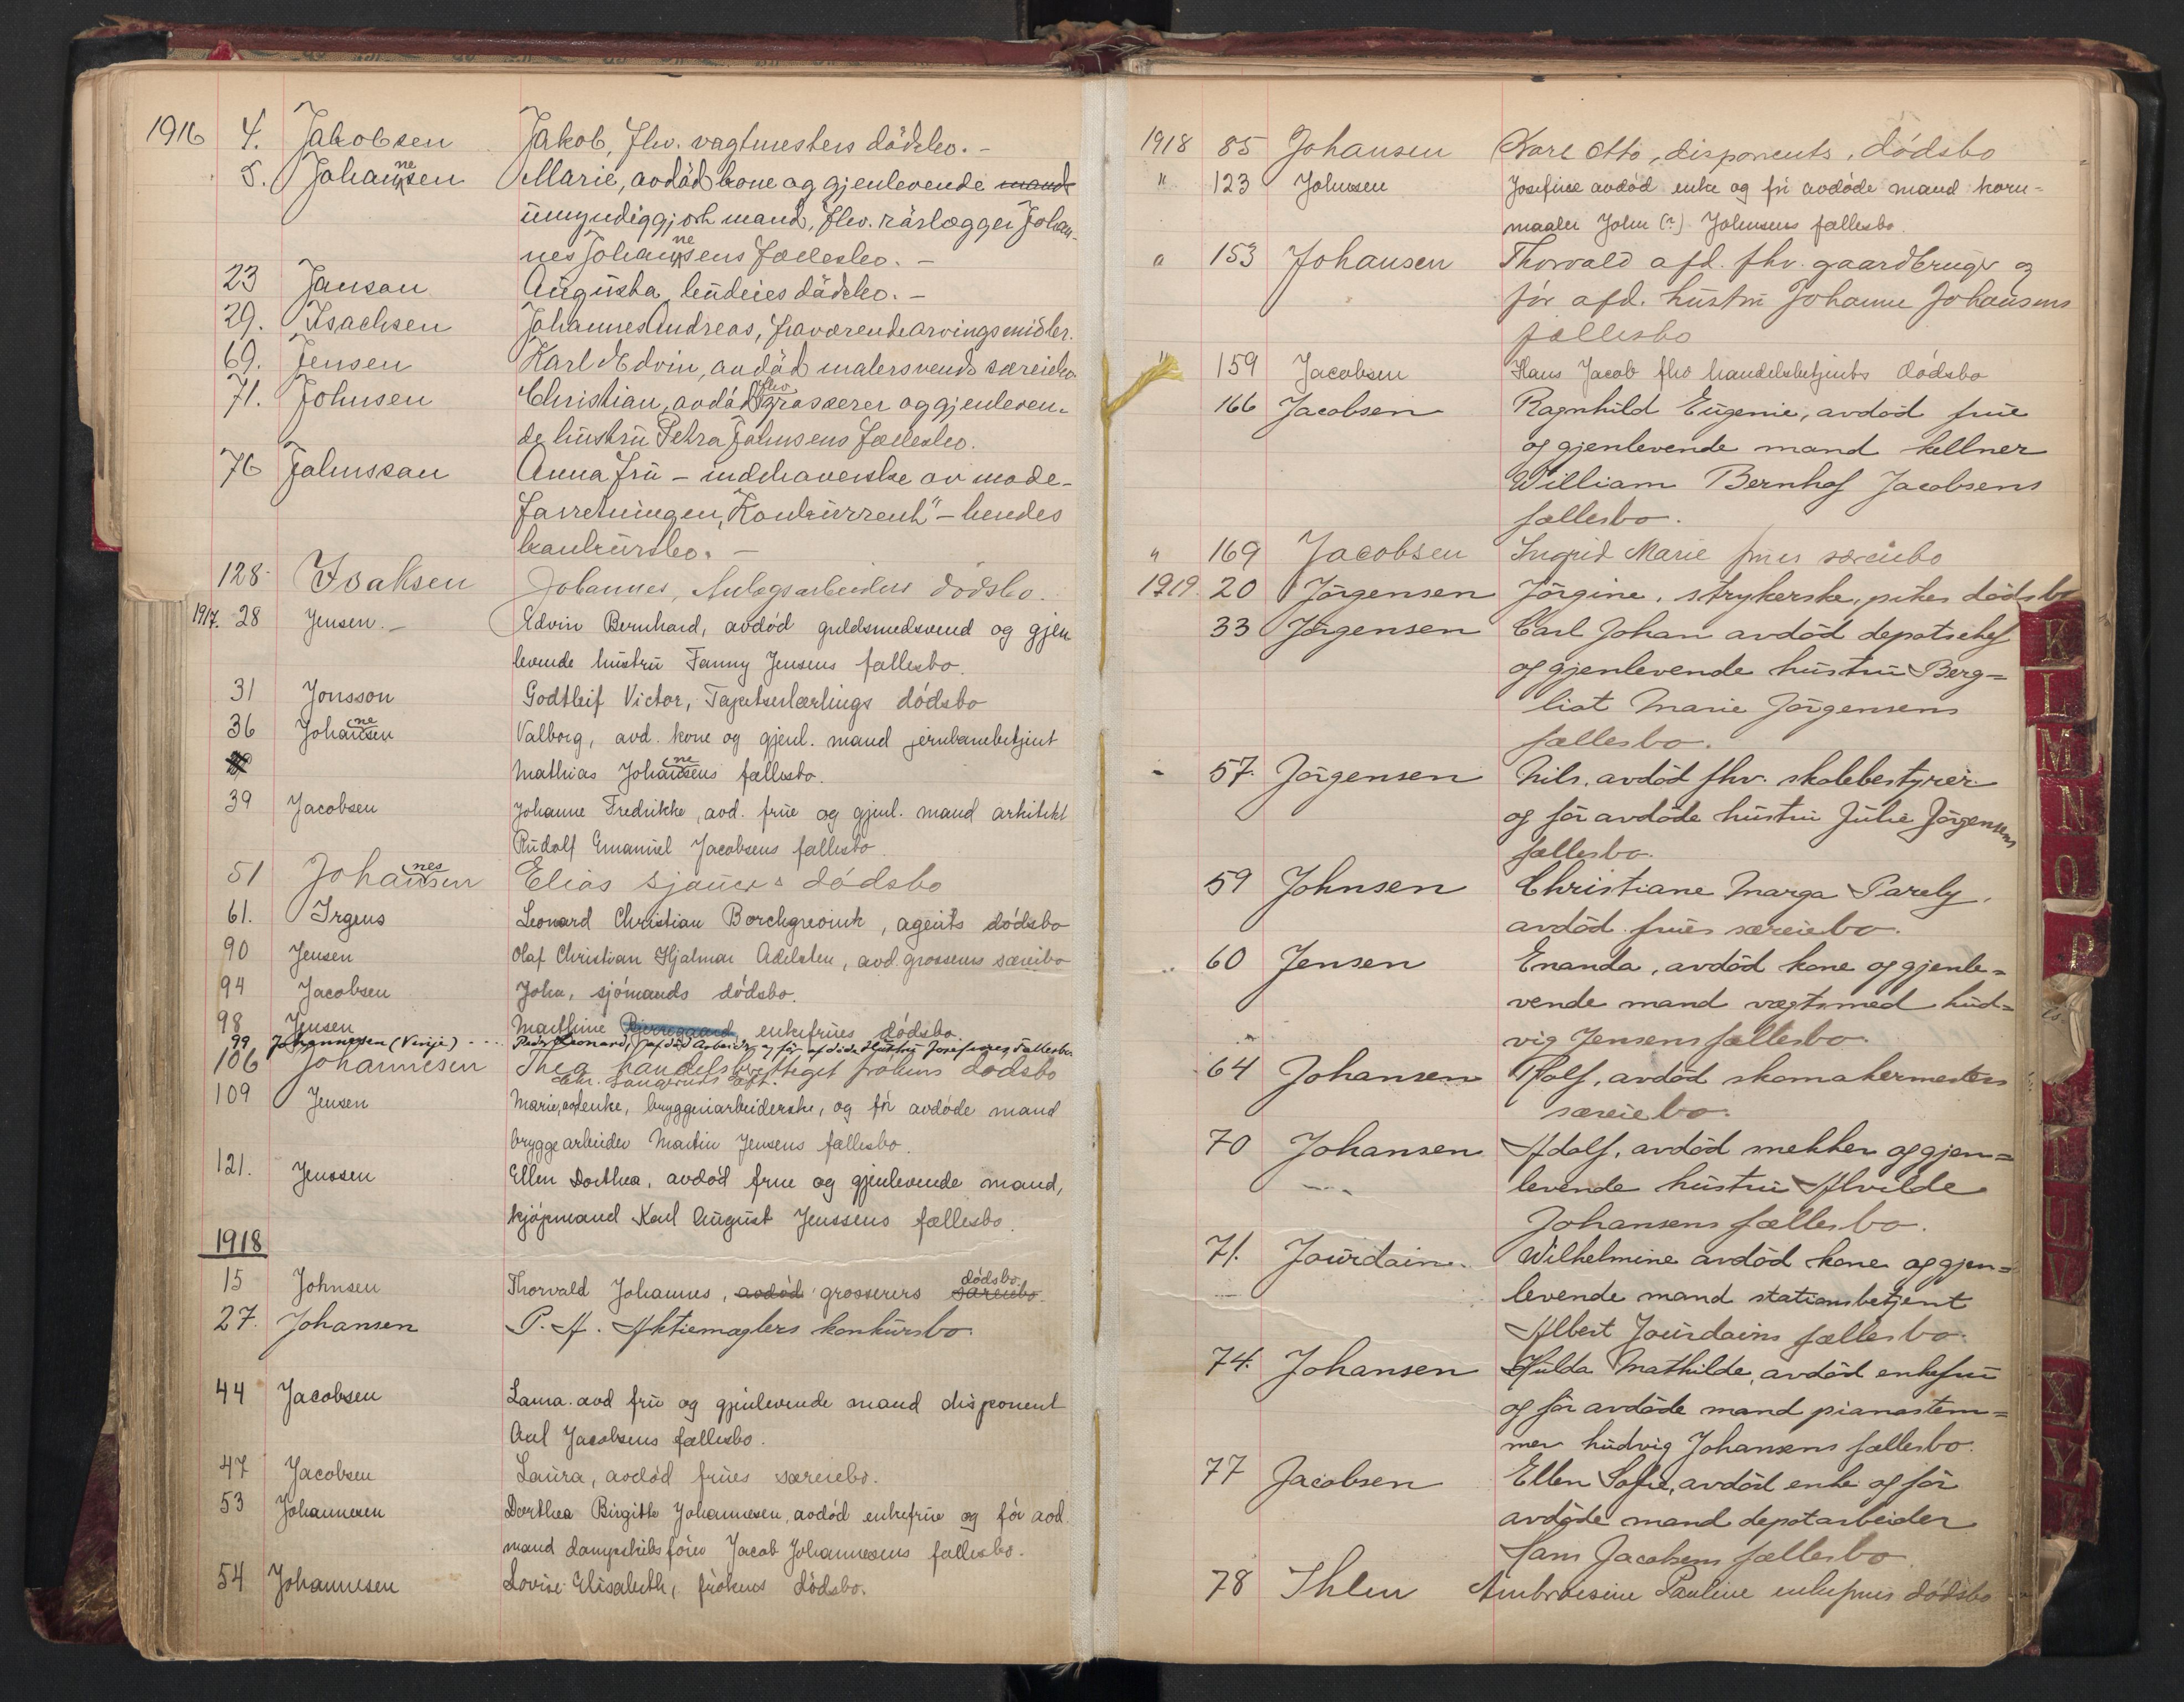 1916 4. Jakobsen Jakob, fhv. vagtmesters dödsbo. -
5. Johannesen Marie, avdöd kone og gjenlevende mands
umyndiggjort mand, fhv. rörlægger Johan-
nes Johannesens fællesbo. -
23 Janson Augusta, dödsbo. -
29. Isachsen Johannes Andreas, fraværende arvings midler.
69. Jensen Karl Edvin, avdöd malersvends særeiebo.
71. Johnsen Christian, avdöd fhv grosserer og gjenleven-
de hustru Petra Johnsens fællesbo.
76 Johnsson Anna fru - indehaverske av mode-
forretningen "Konkurrent" - hendes
konkursbo. -
128- Isaksen Johannes, Anlægsarbeiders dödsbo.
1917. 28 Jensen. - Edvin Bernhard, avdöd guldsmedsvend og gjen
levende hustru Fanny Jensens fællesbo.
31 Jonsson Godtleif Victor, Tapetserlærlings dödsbo
36 Johannesen Valborg, avd. kone og gjenl. mand jernbanebetjent
Mathias Johannesens fællesbo.
39 Jacobsen Johanne Fredrikke, avd. frue og gjenl. mand arkitekt
Rudolf Emanuel Jacobsens fællesbo
51 Johannesen Elias sjauers dödsbo
61. Irgens Leonard Christian Borchgrevink, agents dödsbo
90 Jensen Olaf Christian Hjalmar Adelsten, avd. grosserers særeibo
94 Jacobsen John, sjömands dödsbo.
98 Jensen Marthine Bjerregaard, enkefrues dödsbo.
99 Johannesen (Vinje) - ... Peder Leonard, afdöd Arbeider og för afdöde Hustru Josefines Fællesbo.
106 Johannesen Thea handelsberettiget frökens dödsbo
Chr. Langeruds Eft.
109 Jensen Marie, avd enke, bryggeriarbeiderske, og för avdöde mand
bryggearbeider Martin Jensens fællesbo.
121. Jenssen Ellen Dorthea, avdöd frue og gjenlevende mand,
kjöpmand Karl August Jenssens fællesbo.
1918
15 Johnsen Thorvald Johannes, avdöd grosserers særeiebo dödsbo.
27. Johansen P. A. Aktiemæglers konkursbo.
44 Jacobsen Laura. avd fru og gjenlevende mand disponent
Axel Jacobsens fællesbo.
47 Jacobsen Laura, avdöd frues særeiebo.
53 Johannesen Dorthea Birgitte Johannesen, avdöd enkefrue og för avd.
mand dampskibsförer Jacob Johannesens fællesbo.
54 Johannesen Lovise Elisabeth, frökens dödsbo.
1918 85 Johansen Karl Otto, disponents, dödsbo
" 123 Johnsen Josefine avdöd enke og fri avdöde mand korn-
maaler John (?) Johnsens fællesbo.
" 153 Johansen Thorvald afd. fhv. gaardbruger og
för afd. hustru Johanne Johansens
fællesbo
" 159 Jacobsen Hans Jacob fhv handelsbetjents dödsbo
166 Jacobsen Ragnhild Eugenie, avdöd frue
og gjenlevende mand kellner
William Bernhof Jacobsens
fællesbo.
" 169 Jacobsen Ingrid Marie frues særeiebo
1919. 20 Jörgensen Jörgine, strykerske, pikes dödsbo
33 Jörgensen Carl Johan avdöd depotchef
og gjenlevende hustru Berg-
liot Marie Jörgensens
fællesbo.
- 57. Jörgensen Nils, avdöd fhv. skolebestyrer
og för avdöde hustru Julie Jörgensens
fællesbo.
59 Johnsen Christiane Marga Parely,
avdöd frues særeiebo.
60 Jensen Enanda, avdöd kone og gjenle-
vende mand vægtsmed Lud-
vig Jensens fællesbo.
64 Johansen Rolf, avdöd skomakermesters
særeiebo.
70 Johansen Adolf, avdöd snekker og gjen-
levende hustru Alvilde
Johansens fællesbo.
71. Jourdain. Wilhelmine avdöd kone og gjen-
levende mand stationsbetjent
Albert Jourdains fællesbo.
74. Johansen Hulda Mathilde, avdöd enkefru
og för avdöde mand pianostem-
mer Ludvig Johansens fællesbo.
77 Jacobsen Ellen Sofie, avdöd enke og för
avdöde mand depotarbeider
Hans Jacobsens fællesbo
78 Ihlen Ambrosine Pauline enkefrues dödsbo
K
L
M
N
O
P
S
T
U
V
X
Y